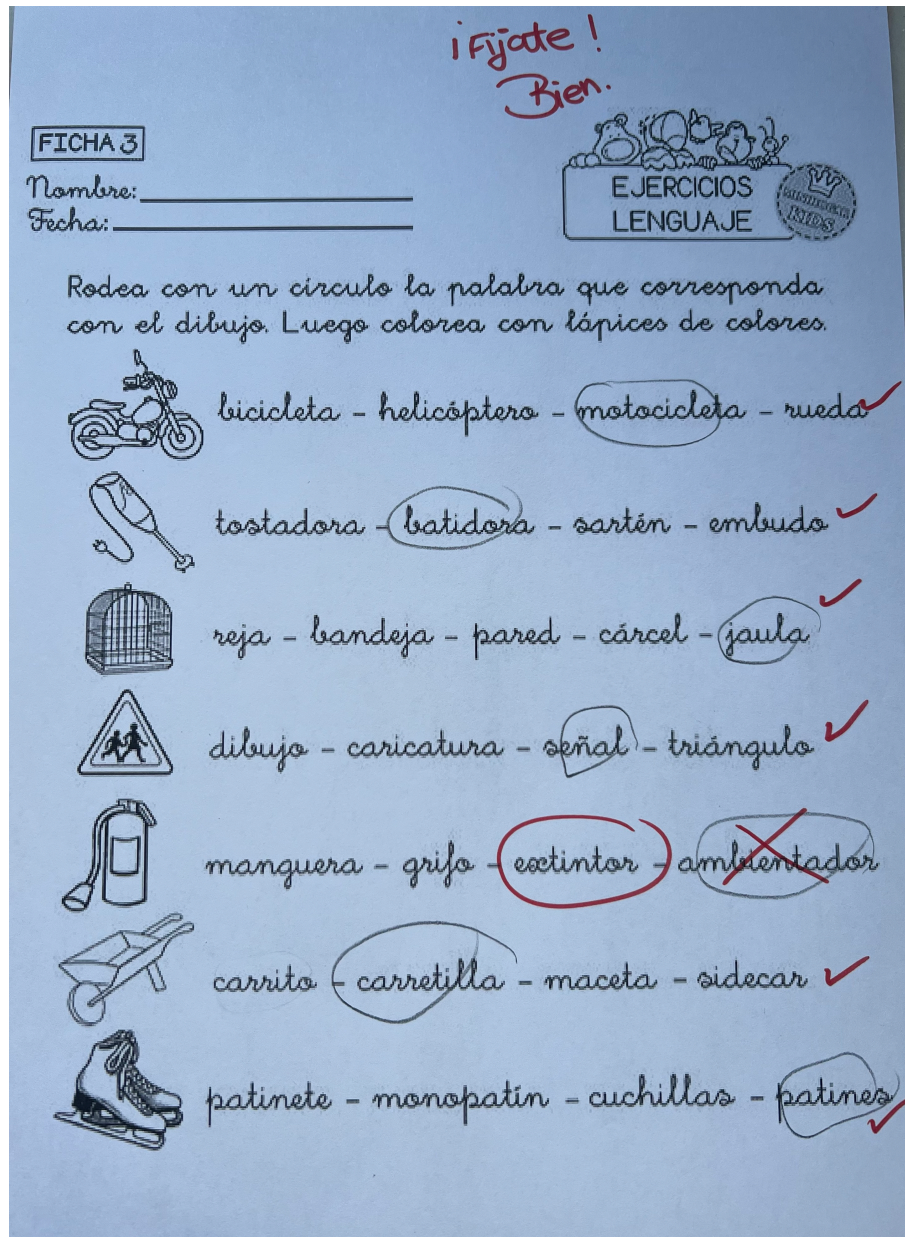 ¡Fíjate!
Bien.
FICHA 3
Nombre:
Fecha:
EJERCICIOS
LENGUAJE
KIDS
Rodea con un círculo la palabra que corresponda
con el dibujo. Luego colorea con lápices de colores.
bicicleta - helicóptero - motocicleta - rueda
tostadora - batidora - sartén - embudo
reja - bandeja - pared - cárcel - jaula
dibujo - caricatura - señal - triángulo
manguera - grifo - extintor - ambientador
carrito - carretilla - maceta - sidecar
patinete - monopatín - cuchillas - patines